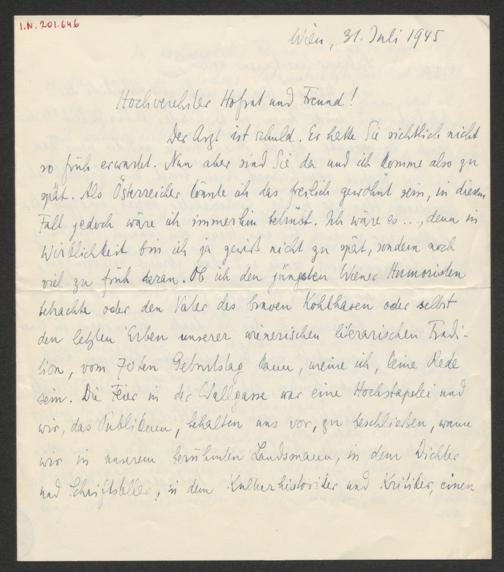 I.N. 201.646
Wien, 31. Juli 1945
Hochverehrter Hofrat und Freund!
Der Arzt ist schuld. Er hatte Sie sichtlich nicht
so früh erwartet. Nun aber sind Sie da und ich komme also zu
spät. Als Österreicher könnte ich das freilich gewöhnt sein, in diesem
Fall jedoch wäre ich immerhin betrübt. Ich wäre es ..., denn in
Wirklichkeit bin ich ja gewiß nicht zu spät, sondern noch
viel zu früh daran. Ob ich den jüngsten Wiener Humoristen
betrachte oder den Vater des braven Kohlhasen oder selbst
den letzten Erben unserer wienerischen literarischen Tradi-
tion, vom 70ten Geburtstag kann, meine ich, keine Rede
sein. Die Feier in der Wallgasse war eine Hochstapelei und
wir, das Publikum, behalten uns vor, zu beschließen, wann
wir in unserem berühmten Landsmann, in dem Dichter
und Schriftsteller, in dem Kulturhistoriker und Kritiker, einen